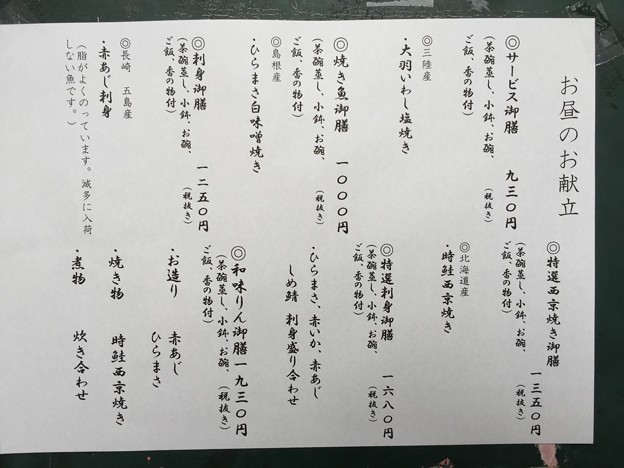 お昼のお献立
◎サービス御膳 九三〇円
(茶碗蒸し、小鉢、お碗、
ご飯、香の物付) (税抜き)
◎三陸産
・大羽いわし塩焼き
◎焼き魚御膳 一〇〇〇円
(茶碗蒸し、小鉢、お碗、
ご飯、香の物付) (税抜き)
◎島根産
・ひらまさ白味噌焼き
◎刺身御膳 一二五〇円
(茶碗蒸し、小鉢、お碗、
ご飯、香の物付) (税抜き)
◎長崎 五島産
・赤あじ刺身
(脂がよくのっています。滅多に入荷
しない魚です。)
◎特選西京焼き御膳 一三五〇円
(茶碗蒸し、小鉢、お碗、
ご飯、香の物付) (税抜き)
◎北海道産
・時鮭西京焼き
◎特選刺身御膳 一六八〇円
(茶碗蒸し、小鉢、お碗、
ご飯、香の物付) (税抜き)
・ひらまさ、赤いか、赤あじ
しめ鯖 刺身盛り合わせ
◎和味りん御膳 一九三〇円
(茶碗蒸し、小鉢、お碗、
ご飯、香の物付) (税抜き)
・お造り 赤あじ
ひらまさ
・焼き物 時鮭西京焼き
・煮物 炊き合わせ